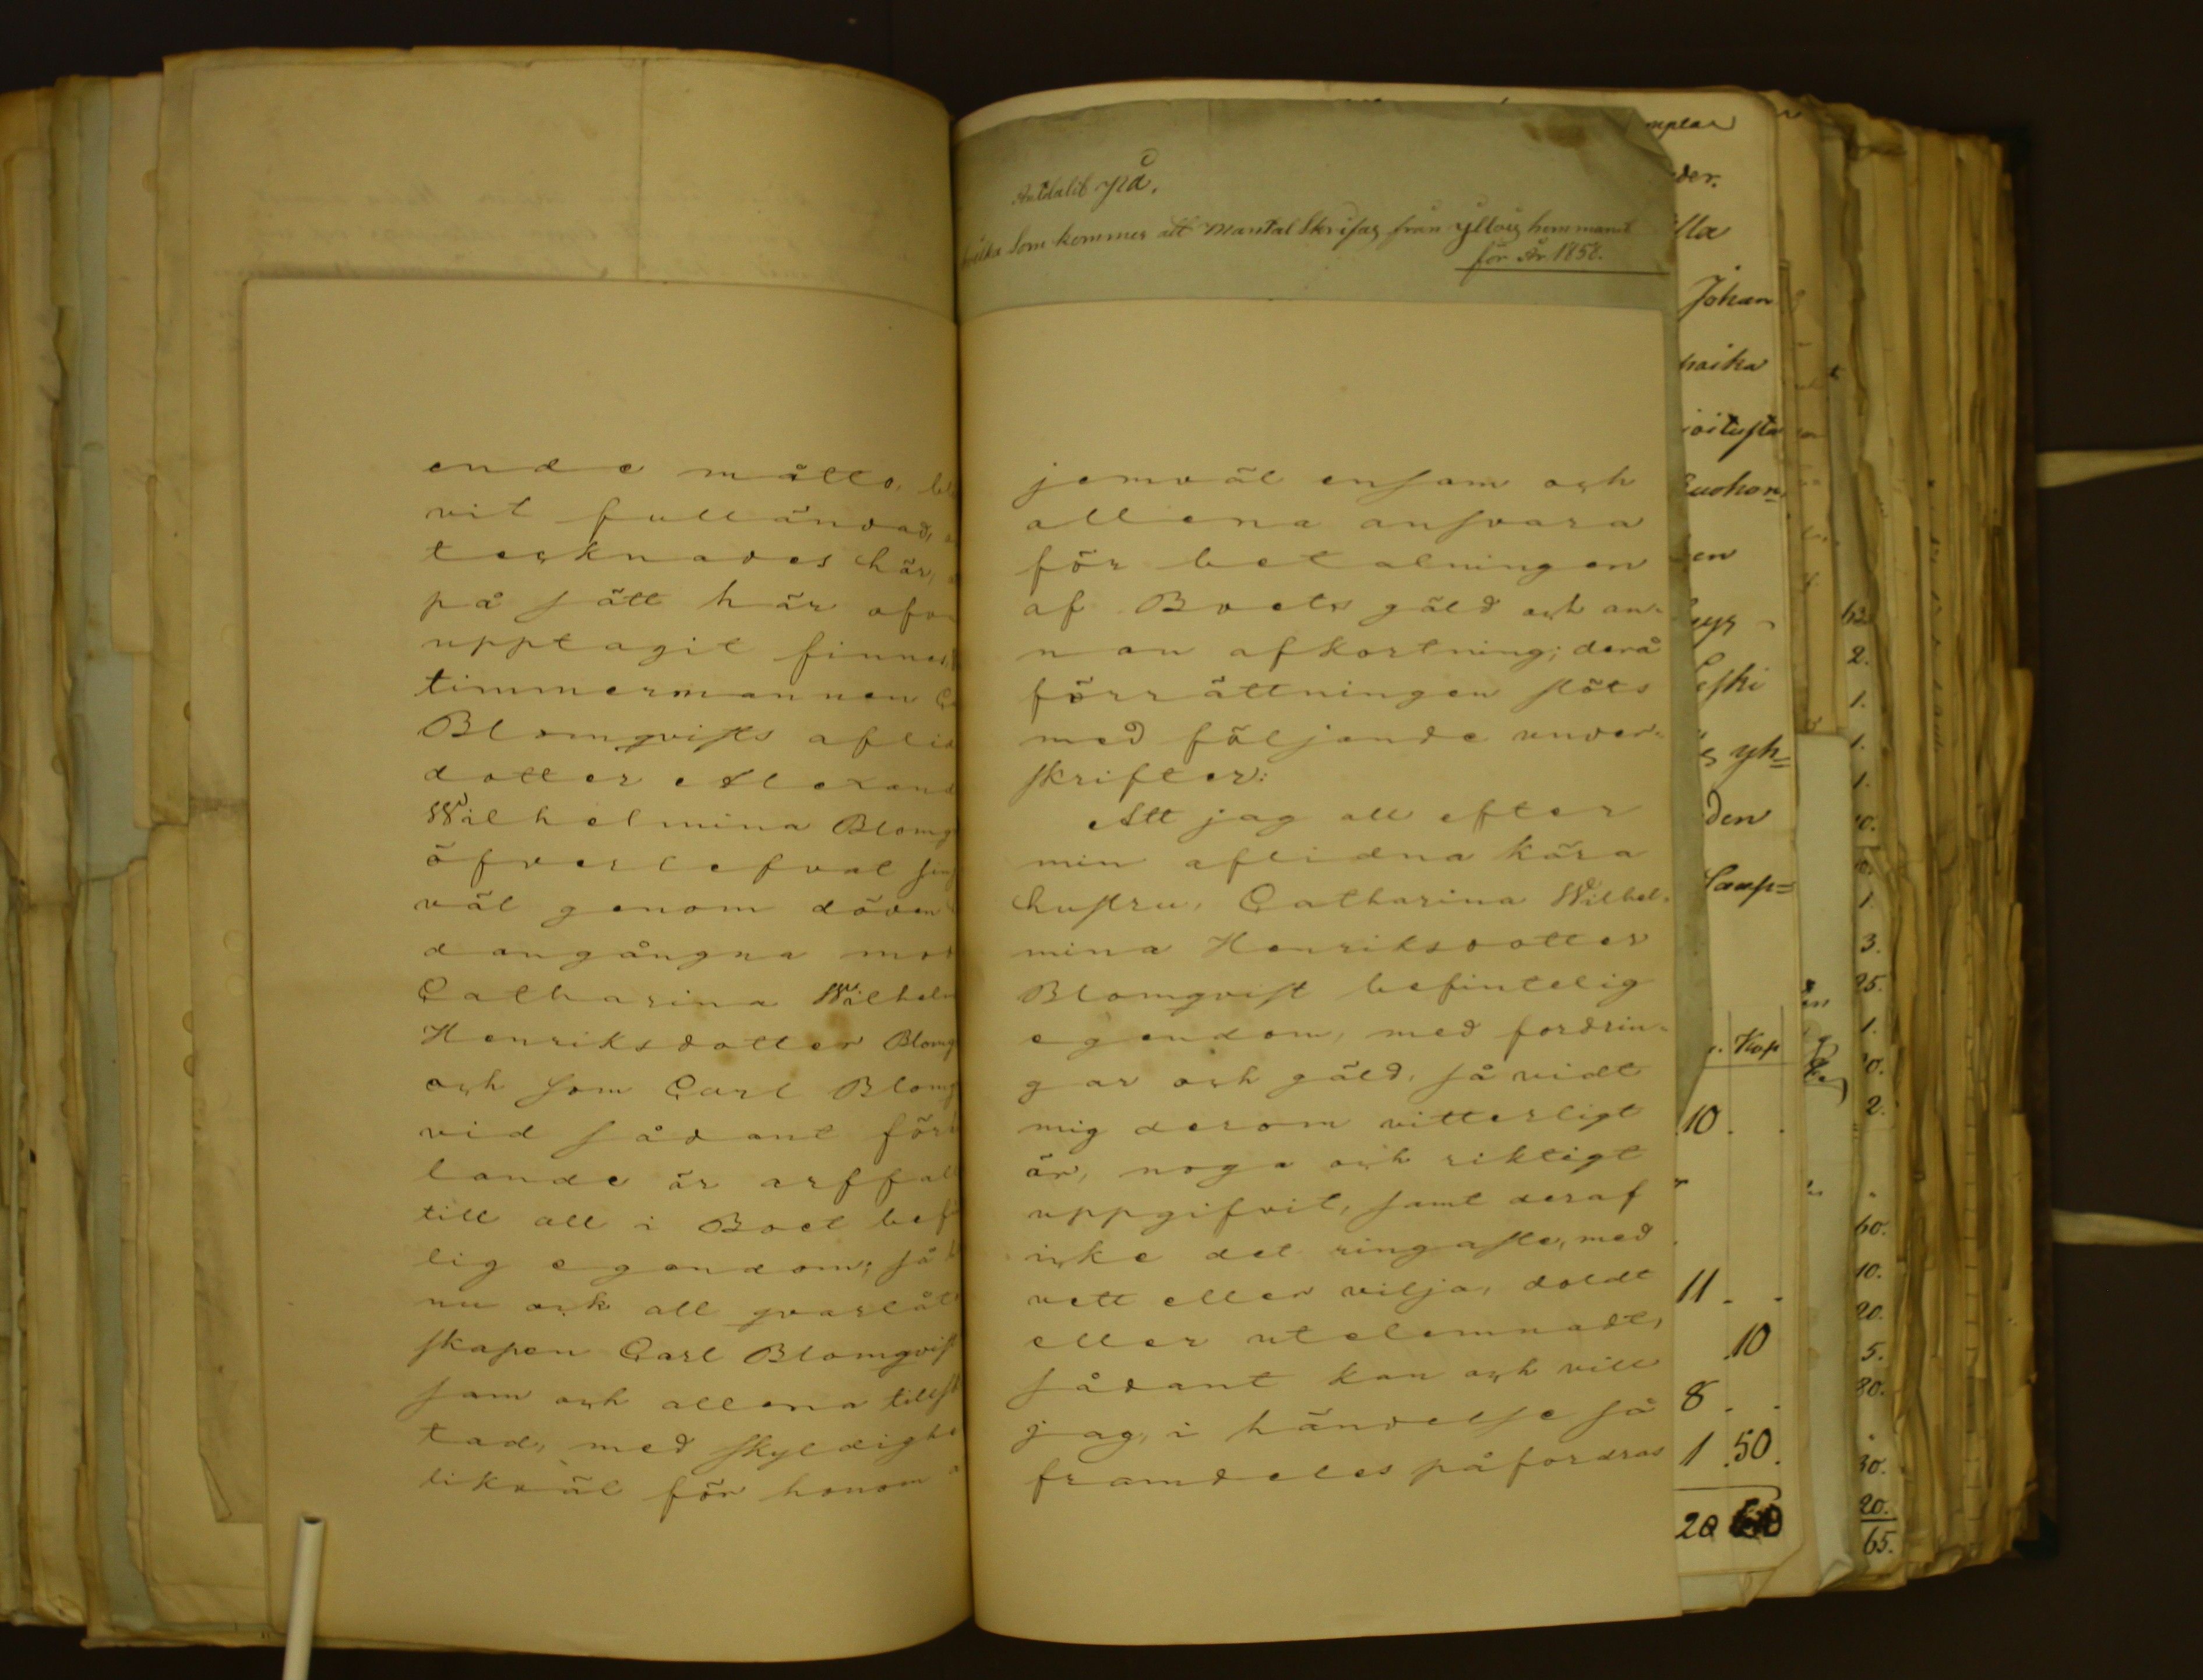 ende måtto, bl
vit fulländad,
tecknades här,
på sätt här ofva
upptagit finnes,
timmermannen C
Blomqvists aflid
dotter Alexand
Wilhelmina Blomq
öfverlefvat sin
väl genom döden
dangångna mod
Catharina Wilhelm
Henriksdotter Blomq
och som Carl Blomq
vid sådant förh
lande är arffal
till all i Boet bef
lig egendom; så
nu ock all qvarlåt
skapen Carl Blomqvist
sam och allena tillst
tad, med skyldighe
likväl för honom a
på.
som kommer att Mantal Skrifas från Yllöis hemmanet
för År 1858.
jemväl ensam och
allena ansvara
för betalningen
af Boets gäld och an-
nan afkortning; derå
förrättningen slöts
med följande under-
skrifter:
Att jag all efter
min aflidna kära
hustru, Catharina Wilhel-
mina Henriksdotter
Blomqvist befintelig
egendom, med fordrin-
gar och gäld, så vidt
mig derom vitterligt
är, noga och riktigt
uppgifvit, samt deraf
icke det ringaste, med
vett eller vilja, doldt
eller utelemnadt,
sådant kan och vill
jag, i händelse så
framdeles påfordras
mplar
der.
lla
Johan
haika
oitusta
uohon
en
eski
yh=
den
Kaup=
Kop
10.
11.
10
8.
1.50.
20
62.
2.
1.
1.
1.
1.
3.
25.
1.
2.
60.
10.
20.
5.
30.
20.
65.